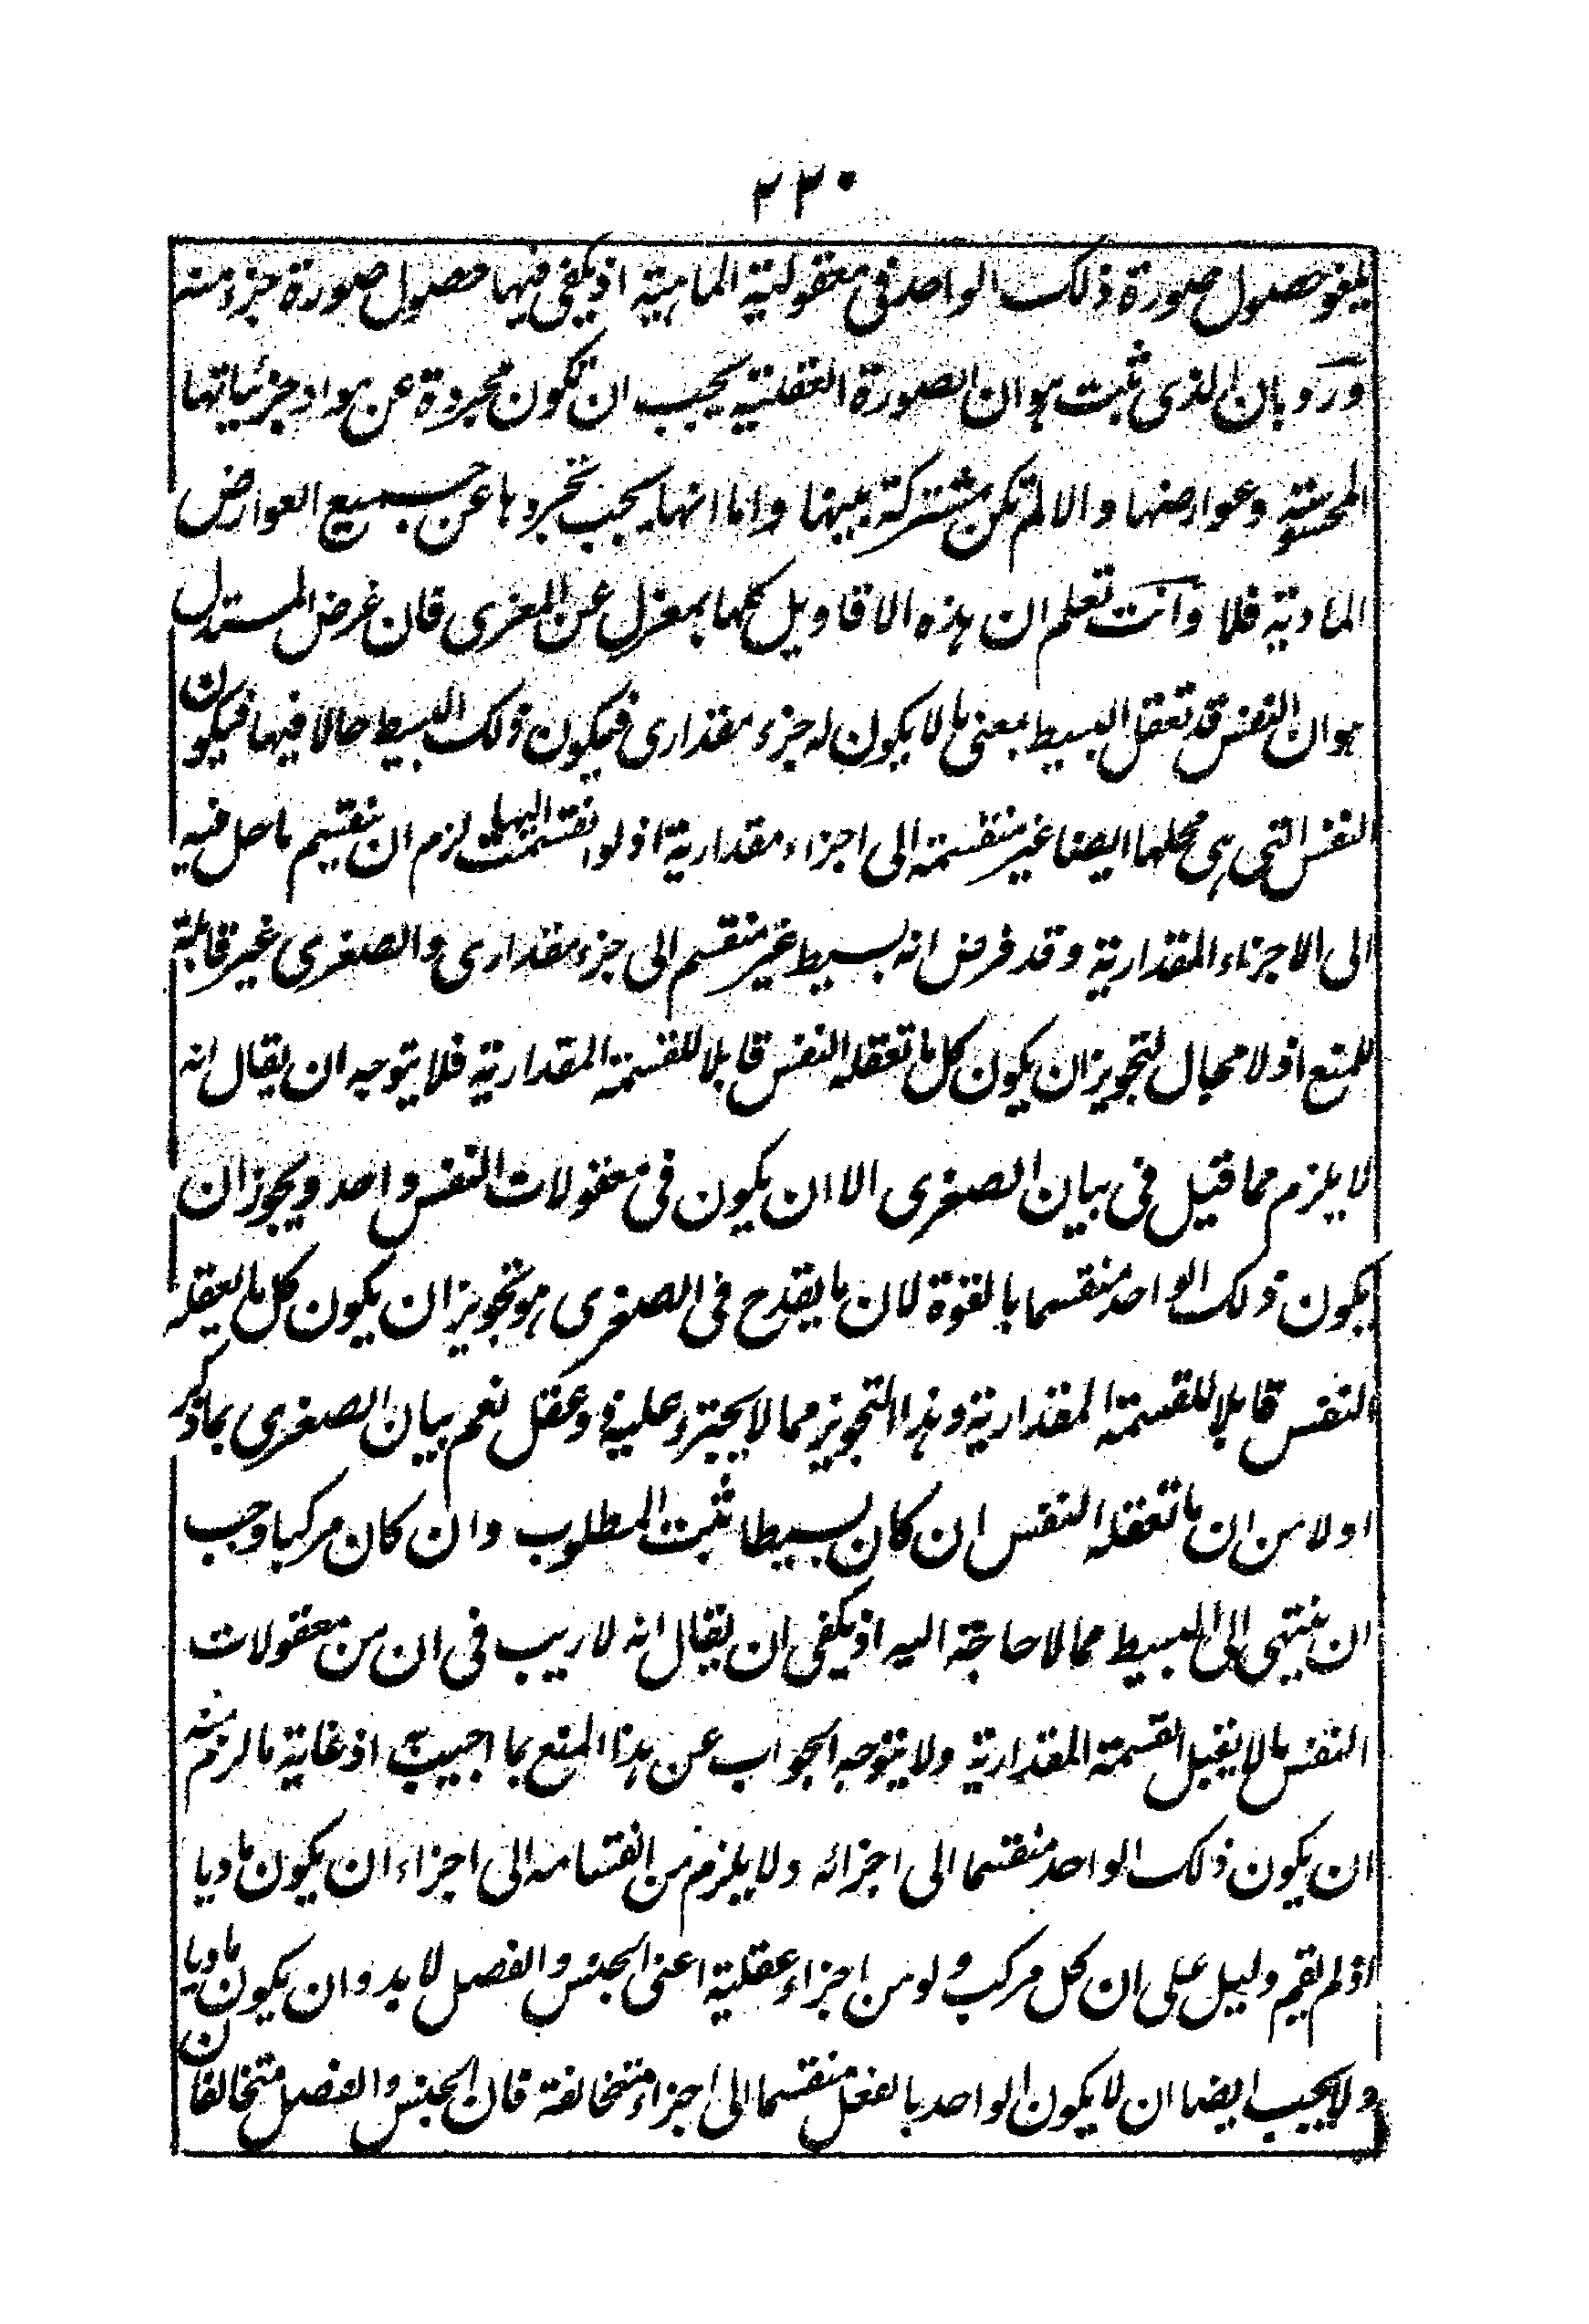 ٢٢٠
يلغو حصول صورة ذلك الواحد فى معقولية الماهية اذ يكفى فيها حصول صورة جزء منه
ورد بان الذى ثبت هو ان الصورة العقلية يجب ان تكون مجردة عن مواد جزئياتها
المحسوسة وعوارضها والا لم تكن مشتركة بينها واما انها يجب تجردها عن جميع العوارض
المادية فلا وانت تعلم ان هذه الاقاويل كلها بمعزل عن المغزى فان غرض المستدل
هو ان النفس قد تعقل البسيط بمعنى ما لا يكون له جزء مقدارى فيكون ذلك البسيط حالا فيها فيكون
النفس التى هى محلها ايضا غير منقسمة الى اجزاء مقدارية اذ لو انقسمت اليها لزم ان ينقسم ما حل فيه
الى الاجزاء المقدارية وقد فرض انه بسيط غير منقسم الى جزء مقدارى والصغرى غير قابلة
للمنع اذ لا مجال لتجويز ان يكون كل ما تعقله النفس قابلا للقسمة المقدارية فلا يتوجه ان يقال انه
لا يلزم مما قيل فى بيان الصغرى الا ان يكون فى معقولات النفس واحد ويجوز ان
يكون ذلك الواحد منقسما بالقوة لان ما يقدح فى الصغرى هو تجويز ان يكون كل ما يعقله
النفس قابلا للقسمة المقدارية وهذا التجويز مما لا يجترء عليه ذو عقل نعم بيان الصغرى بما ذكر
اولا من ان ما تعقله النفس ان كان بسيطا ثبت المطلوب وان كان مركبا وجب
ان ينتهى الى البسيط مما لا حاجة اليه اذ يكفى ان يقال انه لا ريب فى ان من معقولات
النفس ما لا يقبل القسمة المقدارية ولا يتوجه الجواب عن هذا المنع بما اجيب به اذ غاية ما لزم منه
ان يكون ذلك الواحد منقسما الى اجزائه ولا يلزم من انقسامه الى اجزاء ان يكون ماديا
اذ لم يقم دليل على ان كل مركب ولو من اجزاء عقلية اعنى الجنس والفصل لا بد وان يكون ماديا
ولا يجب ايضا ان لا يكون الواحد بالفعل منقسما الى اجزاء متخالفة فان الجنس والفصل متخالفان